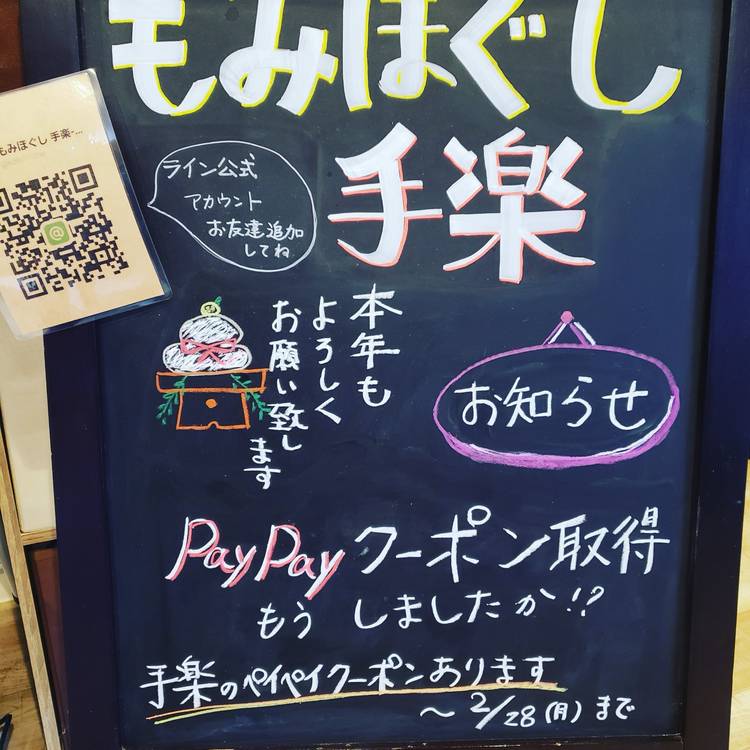 もみほぐし
手楽
もみほぐし 手楽-...
ライン公式
アカウント
お友達追加
してね
本年も
よろしく
お願い致し
ます
お知らせ
PayPayクーポン取得
もう しましたか!?
手楽のペイペイクーポンあります
～2/28(月)まで